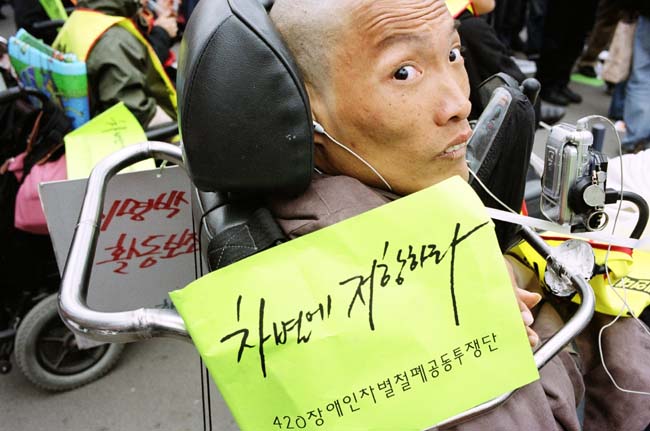 차별에 저항하라
420장애인차별철폐공동투쟁단
활동보조